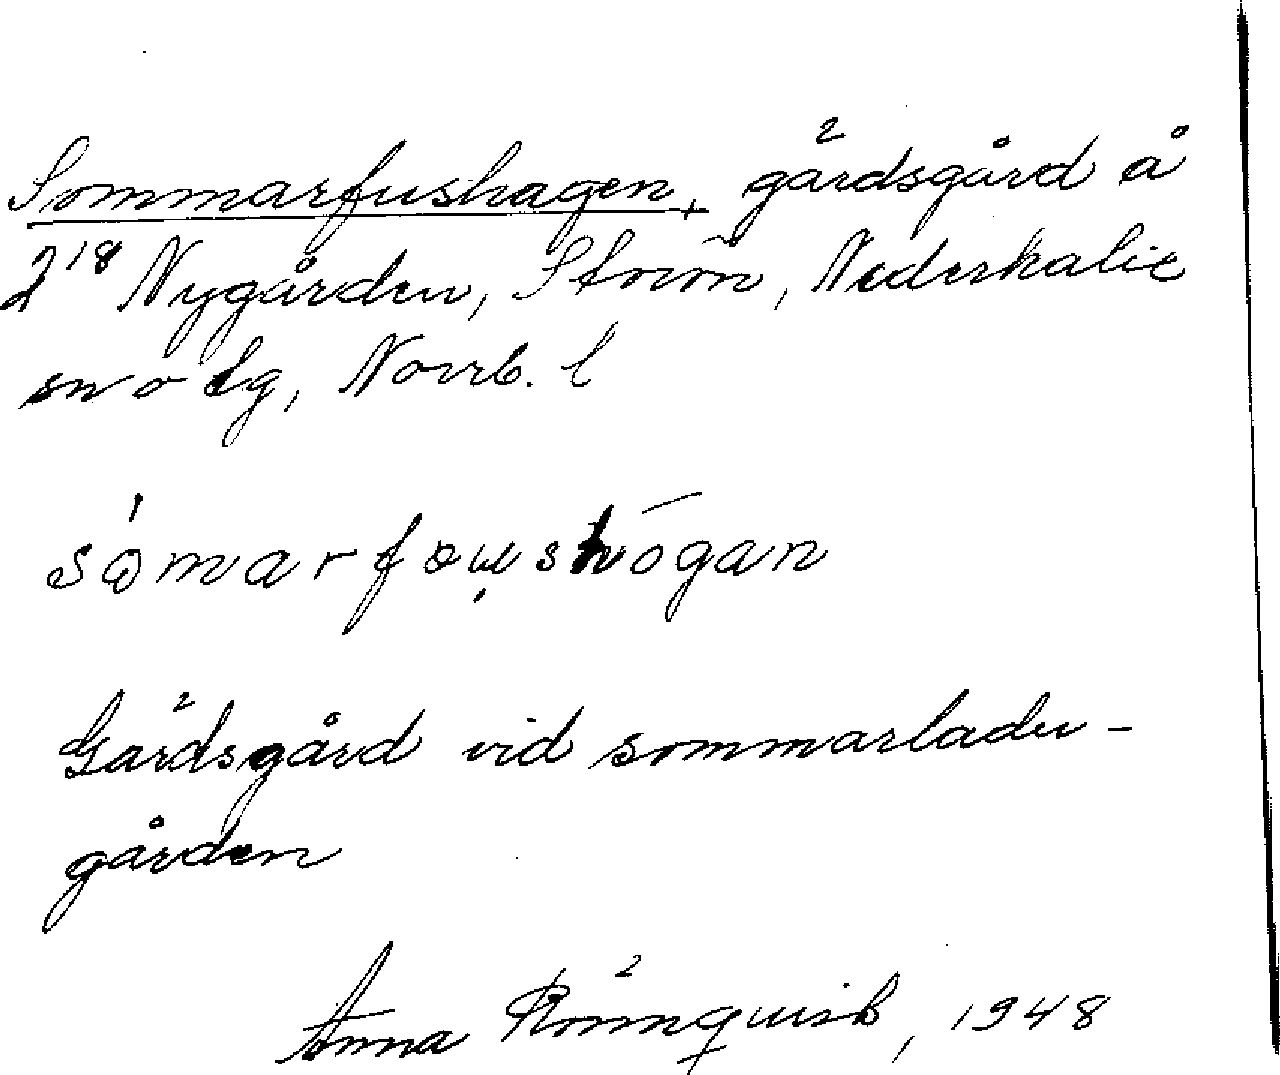 Sommarfushagen, gärdsgård å
2¹⁸ Nygården, Storön, Nederkalix
sn o lg, Norrb. l
sòmarfɷu̜shōgan
Gärdsgård vid sommarladu-
gården
Anna Rönnquist, 1948